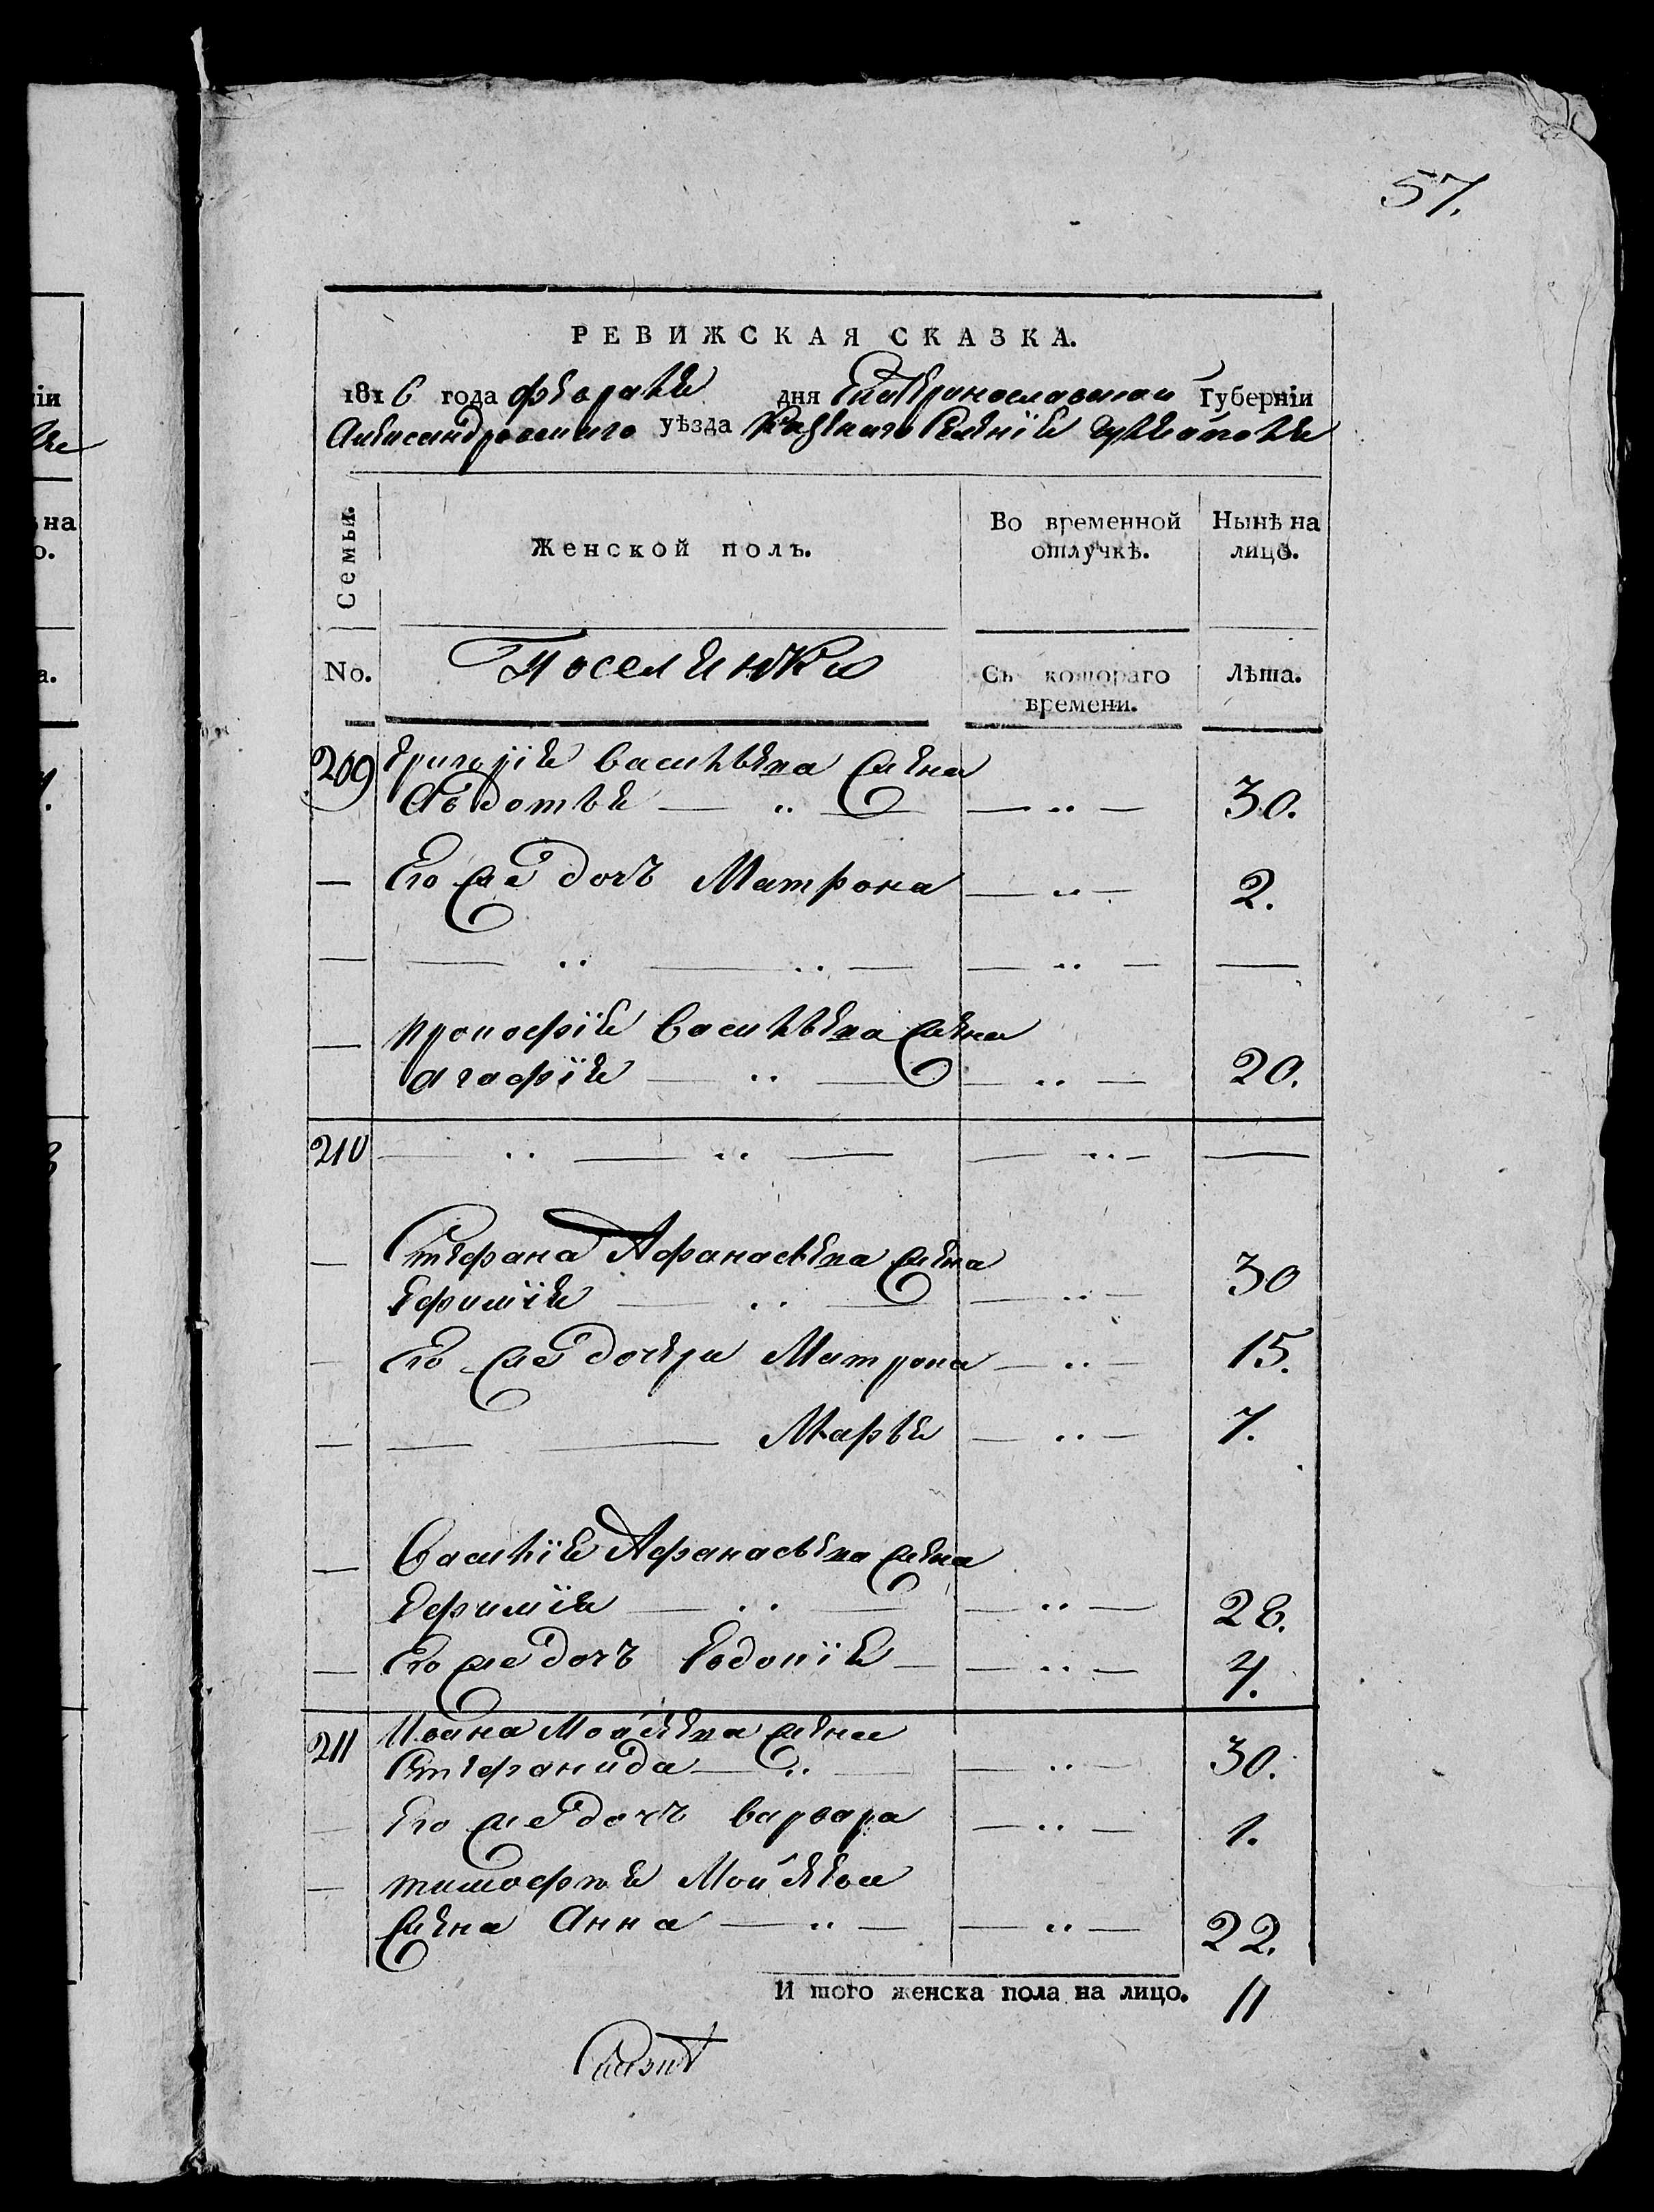 57.
РЕВИЖСКАЯ СКАЗКА.
1816 года февраля дня Екатеринославской Губернiи
Александровскаго уѣзда Казенаго Селенiя
Семьи.
Женской полъ.
Во временной отлучкѣ.
Нынѣ на лицо.
No.
Поселянка
Съ котораго времени.
Лѣта.
209 Григорiя Васильева жена
Авдотья — „ — — „ — 30.
— Его же дочь Матрона — „ — 2.
— — „ — „ — — „ — —
— Прокофiя Васильева жена
Агафiя — „ — — „ — 20.
210 — „ — „ — — „ — —
— Стефана Афанасьева жена
Ефимiя — „ — — „ — 30
— Его же дочери Матрона — „ — 15.
— — — Марья — „ — 7.
— Василiя Афанасьева жена
Ефимiя — „ — — „ — 28.
— Его же дочь Евдокiя — — „ — 4.
211 Ивана Мойсеева жена
Стефанида — „ — — „ — 30.
— Его же дочь Варвара — „ — 1.
— Тимофея Мойсеева
жена Анна — „ — — „ — 22.
И того женска пола на лицо. 11